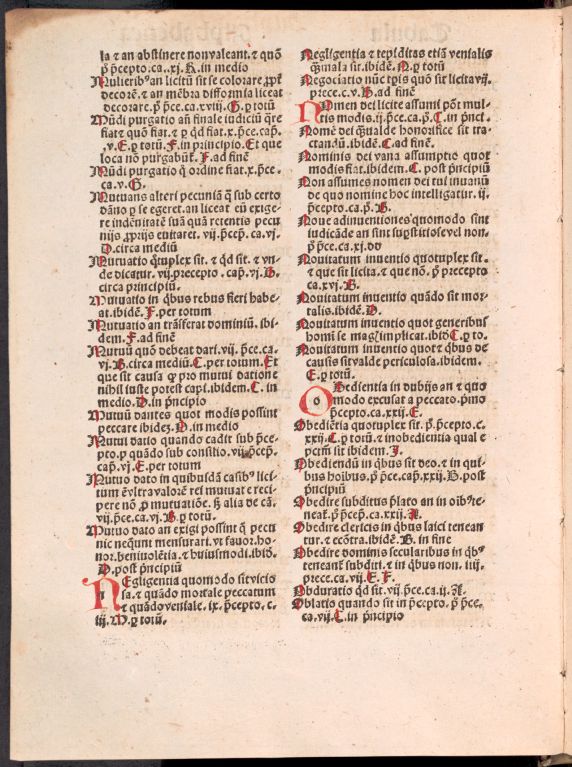 la ⁊ an abstinere non valeant. ⁊ quō
p̄ p̄cepto.ca..xj. K. in medio
Mulieribꝰ an licitū sit se colorare ꝓpt̄
decorē. ⁊ an mēbra difformia liceat
decorare. p̄ p̄ce.ca.xviii. G. ꝑ totū
Mūdi purgatio añ finale iudiciū q̄re
fiat ⁊ quō fiat. ⁊ ꝑ qd̄ fiat. x. p̄ce. cap̄.
.v. E. ꝑ totū. F. in principio. Et que
loca nō purgabūt̄. F. ad finē
Mūdi purgatio q̄ ordine fiat. x. p̄ce.
ca.v. G.
Mutuans alteri pecuniā q̄ sub certo
dāno ꝑ se egeret. an liceat eū exige-
re indēnitatē suā quā retentis pecu
nijs ꝓprijs euitaret. vij. p̄cep̄. ca.vj.
D. circa mediū
Mutuatio q̄tuplex sit. ⁊ qd̄ sit. ⁊ vn-
de dicatur. vij. precepto. cap̄. vj. B.
circa principiū.
Mutuatio in qb̄us rebus fieri habe-
at. ibidē. F. per totum
Mutuatio an trāsferat dominiū. ibi-
dem. F. ad finē
Mutuū quō debeat dari. vij. p̄ce.ca.
vj. B. circa mediū. C. per totum. Et
que sit causa qꝫ pro mutui datione
nihil iuste potest capi. ibidem. C. in
medio. D. in p̄ncipio
Mutuū dantes quot modis possint
peccare ibidez. D. in medio
Mutui datio quando cadit sub p̄ce-
pto. ꝑ quādo sub consilio. vij. p̄cep̄.
cap̄. vj. E. per totum
Mutuo dato in quibusdā casibꝰ lici-
tum ē vltra valorē rei mutuate reci-
pere nō ꝓ mutuatiōe. sꝫ alia de cā.
vij. p̄ce.ca.vj. B. ꝑ totū.
Mutuo dato an exigi possint q̄ pecu
nie neq̄unt mensurari. vt fauor. ho-
nor. beniuolētia. ⁊ huiusmodi. ibid̄.
D. post p̄ncipiū
Negligentia quomodo sit vicio
sa. ⁊ quādo mortale peccatum
⁊ quādo veniale. ix. p̄cepto. c.
iij. M. ꝑ totū.
Negligentia ⁊ tepiditas etiā venialis
q̄ mala sit. ibidē. N. ꝑ totū
Negociatio nūc tp̄is quō sit licita vij.
prece.c.v. B. ad finē
Nomen dei licite assumi pōt mul-
tis modis. ij. p̄ce.ca.p̄. C. in p̄nct.
Nomē dei q̄ualde honorifice sit tra-
ctandū. ibidē. C. ad finē.
Nominis dei vana assumptio quot
modis fiat. ibidem. C. post p̄ncipiū
Non assumes nomen dei tui in vanū
de quo nomine hoc intelligatur. ij.
p̄cepto.ca.p̄. B.
Noue adinuentiones quomodo sint
iudicāde an sint suꝑstitiose vel non.
p̄ p̄ce.ca.xj.oo
Nouitatum inuentio quotuplex sit.
⁊ que sit licita. ⁊ que nō. p̄ precepto
ca.xvj. B.
Nouitatum inuentio quādo sit mor-
talis. ibidē. D.
Nouitatum inuentio quot generibus
homī se mag implicat. ibid̄ C. ꝑ to.
Nouitatum inuentio quot ⁊ qb̄us de
causis sit valde periculosa. ibidem.
E. ꝑ totū.
Obedientia in dubijs an ⁊ quo
modo excusat a peccato. p̄mo
p̄cepto.ca.xxij. E.
Obediētia quotuplex sit. p̄ p̄cepto. c.
xxij. C. ꝑ totū. ⁊ inobedientia quale
pctm̄ sit ibidem. I.
Obediendū in qb̄us sit deo. ⁊ in qui-
bus hoībus. p̄ p̄ce.cap̄.xxij. B. post
p̄ncipiū
Obedire subditus p̄lato an in oībꝰ te-
neat̄. p̄ p̄cep̄.ca.xxij. A.
Obedire clericis in qb̄us laici tenean
tur. ⁊ ecōtra. ibidē. B. in fine
Obedire dominis secularibus in qb̄ꝰ
teneant̄ subditi. ⁊ in qb̄us non. iiij.
prece.ca.vij. E. F.
Obduratio qd̄ sit. vij. p̄ce.ca.ij. A.
Oblatio quando sit in p̄cepto. p̄ p̄ce.
ca.vij. L. in p̄ncipio